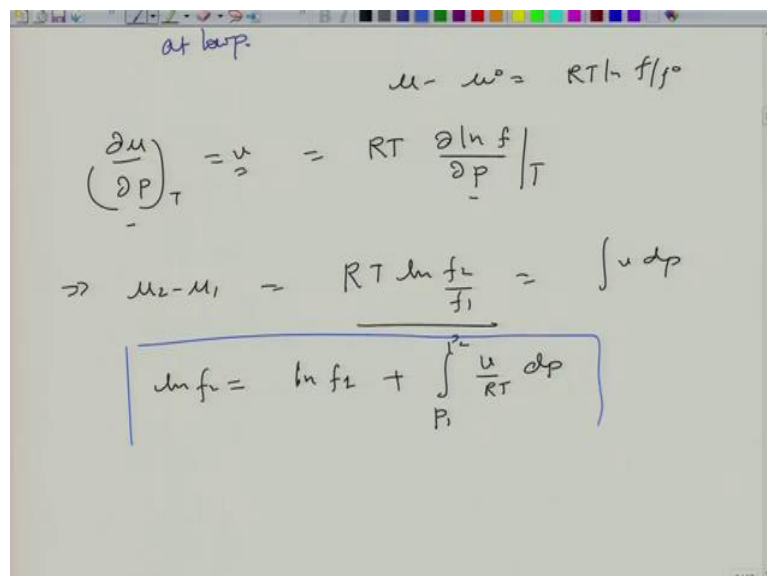 at low p.
μ - μ° = RT ln f/f°
(∂μ/∂P)_T = v = RT ∂ln f/∂p |_T
⇒ μ₂-μ₁ = RT ln f₂/f₁ = ∫ v dp
ln f₂ = ln f₁ + ∫_{P₁}^{P₂} v/RT dp